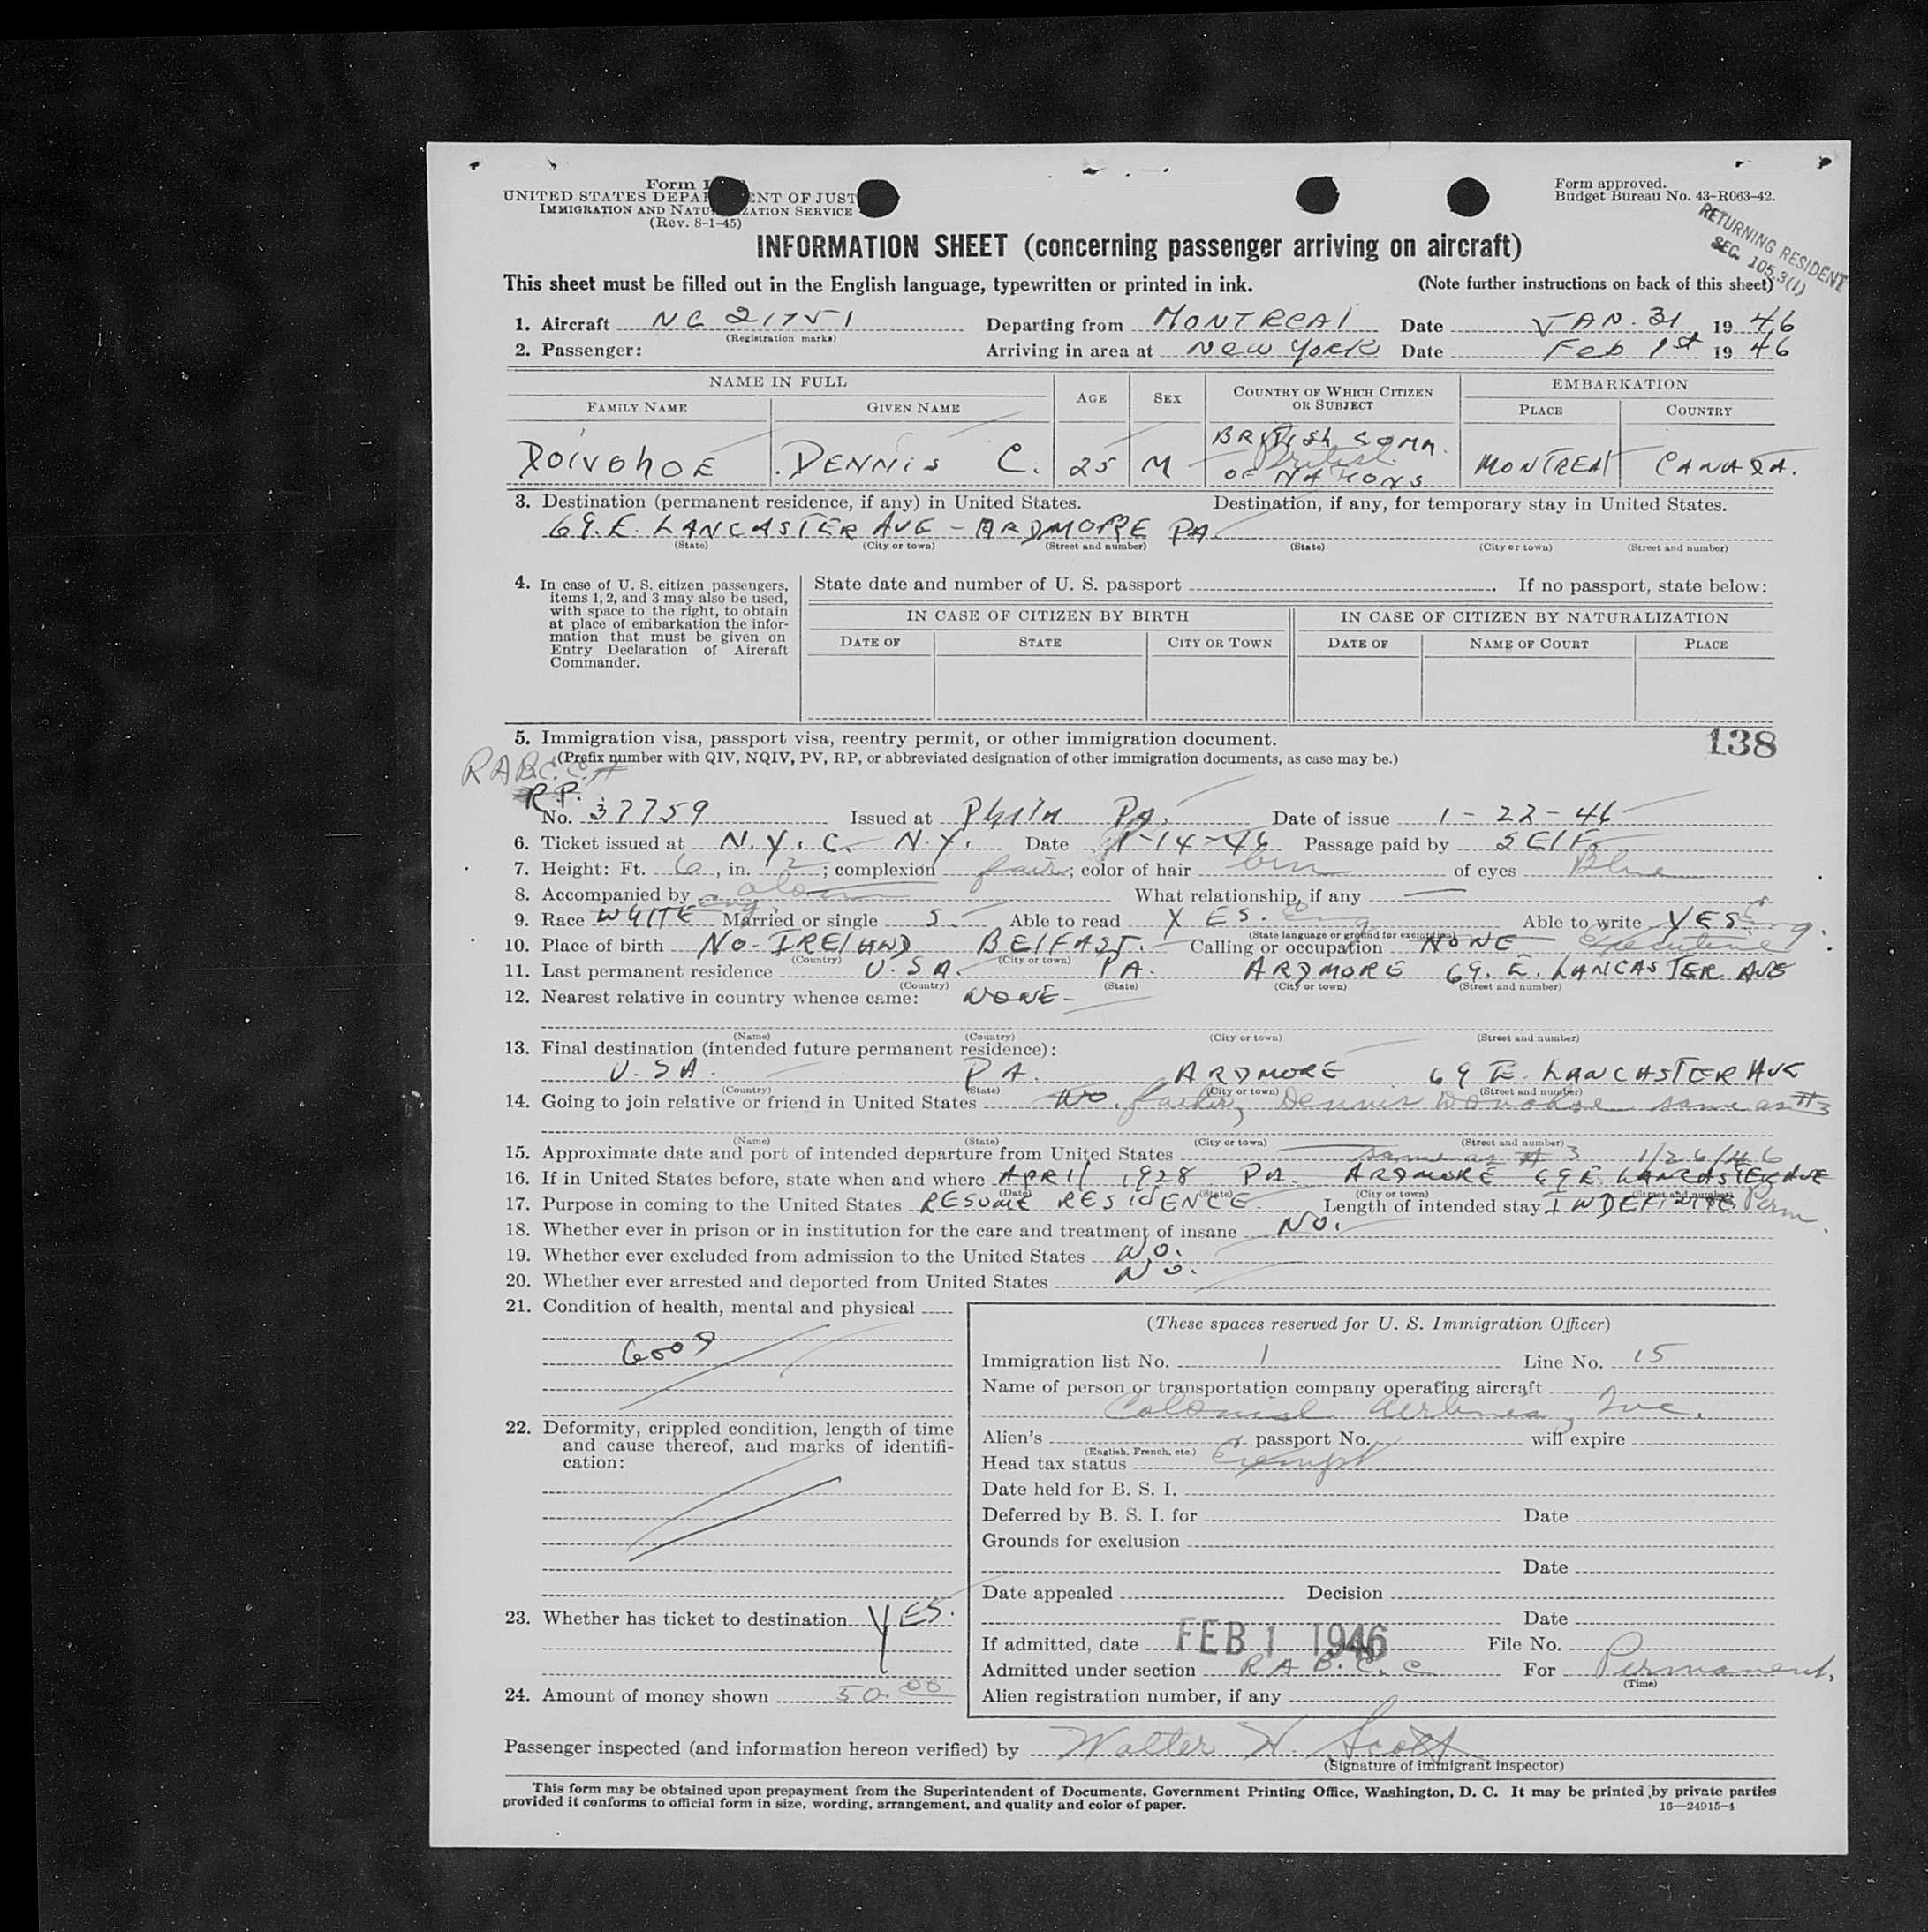 Form I
UNITED STATES DEPA ENT OF JUST
IMMIGRATION AND NATU ZATION SERVICE
(Rev. 8-1-45)
Form approved.
Budget Bureau No. 43-R063-42.
RETURNING RESIDENT
SEC. 105.3(1)
INFORMATION SHEET (concerning passenger arriving on aircraft)
This sheet must be filled out in the English language, typewritten or printed in ink. (Note further instructions on back of this sheet)
1. Aircraft NC 21751 Departing from MONTREAl Date JAN. 31, 19 46
(Registration marks)
2. Passenger: Arriving in area at NEW YORK Date Feb 1st 19 46
NAME IN FULL AGE SEX COUNTRY OF WHICH CITIZEN OR SUBJECT EMBARKATION
FAMILY NAME GIVEN NAME PLACE COUNTRY
DONOHOE DENNIS C. 25 M BRITISH COMM. OF NATIONS British MONTREAl CANADA.
3. Destination (permanent residence, if any) in United States. Destination, if any, for temporary stay in United States.
69. E. LANCASTER AVE - ARDMORE PA.
(State) (City or town) (Street and number) (State) (City or town) (Street and number)
4. In case of U. S. citizen passengers,
items 1, 2, and 3 may also be used,
with space to the right, to obtain
at place of embarkation the infor-
mation that must be given on
Entry Declaration of Aircraft
Commander.
State date and number of U. S. passport . If no passport, state below:
IN CASE OF CITIZEN BY BIRTH IN CASE OF CITIZEN BY NATURALIZATION
DATE OF STATE CITY OR TOWN DATE OF NAME OF COURT PLACE
5. Immigration visa, passport visa, reentry permit, or other immigration document.
138
(Prefix number with QIV, NQIV, PV, RP, or abbreviated designation of other immigration documents, as case may be.)
RABC.C.#
R.P.
No. 37759 Issued at Phila PA. Date of issue 1 - 22 - 46
6. Ticket issued at N.Y.C. N.Y. Date 1-14-46 Passage paid by SElF
7. Height: Ft. 6, in. 2; complexion fair; color of hair brn of eyes Blue
8. Accompanied by alone What relationship, if any —
9. Race WHITE Eng. Married or single S. Able to read YES. Eng Able to write YES. Eng.
(State language or ground for exemption)
10. Place of birth NO. IRElAND BElFAST. Calling or occupation NONE Executive
(Country) (City or town)
11. Last permanent residence U.S.A. PA. ARDMORE 69. E. LANCASTER AVE
(Country) (State) (City or town) (Street and number)
12. Nearest relative in country whence came: NONE-
(Name) (Country) (City or town) (Street and number)
13. Final destination (intended future permanent residence):
U.S.A. PA. ARDMORE 69 E. LANCASTER AVE
(Country) (State) (City or town) (Street and number)
14. Going to join relative or friend in United States NO. father, Dennis Donohoe same as #3
(Name) (State) (City or town) (Street and number)
15. Approximate date and port of intended departure from United States same as # 3 1/26/46
16. If in United States before, state when and where APRIl 1928 PA. ARDMORE 69 E. LANCASTER AVE
(Date) (State) (City or town) (Street and number)
17. Purpose in coming to the United States RESUME RESIDENCE. Length of intended stay INDEFINITE Perm.
18. Whether ever in prison or in institution for the care and treatment of insane NO.
19. Whether ever excluded from admission to the United States NO.
20. Whether ever arrested and deported from United States NO.
21. Condition of health, mental and physical
GOOD
22. Deformity, crippled condition, length of time
and cause thereof, and marks of identifi-
cation:
23. Whether has ticket to destination YES.
24. Amount of money shown 50.00
(These spaces reserved for U. S. Immigration Officer)
Immigration list No. 1 Line No. 15
Name of person or transportation company operating aircraft
Colonial Airlines, Inc.
Alien's passport No. will expire
(English, French, etc.)
Head tax status Exempt
Date held for B. S. I.
Deferred by B. S. I. for Date
Grounds for exclusion
Date
Date appealed Decision
Date
If admitted, date FEB 1 1946 File No.
Admitted under section R A B. C. C For Permanent,
(Time)
Alien registration number, if any
Passenger inspected (and information hereon verified) by Walter H. Scott
(Signature of immigrant inspector)
This form may be obtained upon prepayment from the Superintendent of Documents, Government Printing Office, Washington, D. C. It may be printed by private parties
provided it conforms to official form in size, wording, arrangement, and quality and color of paper. 16—24915-4